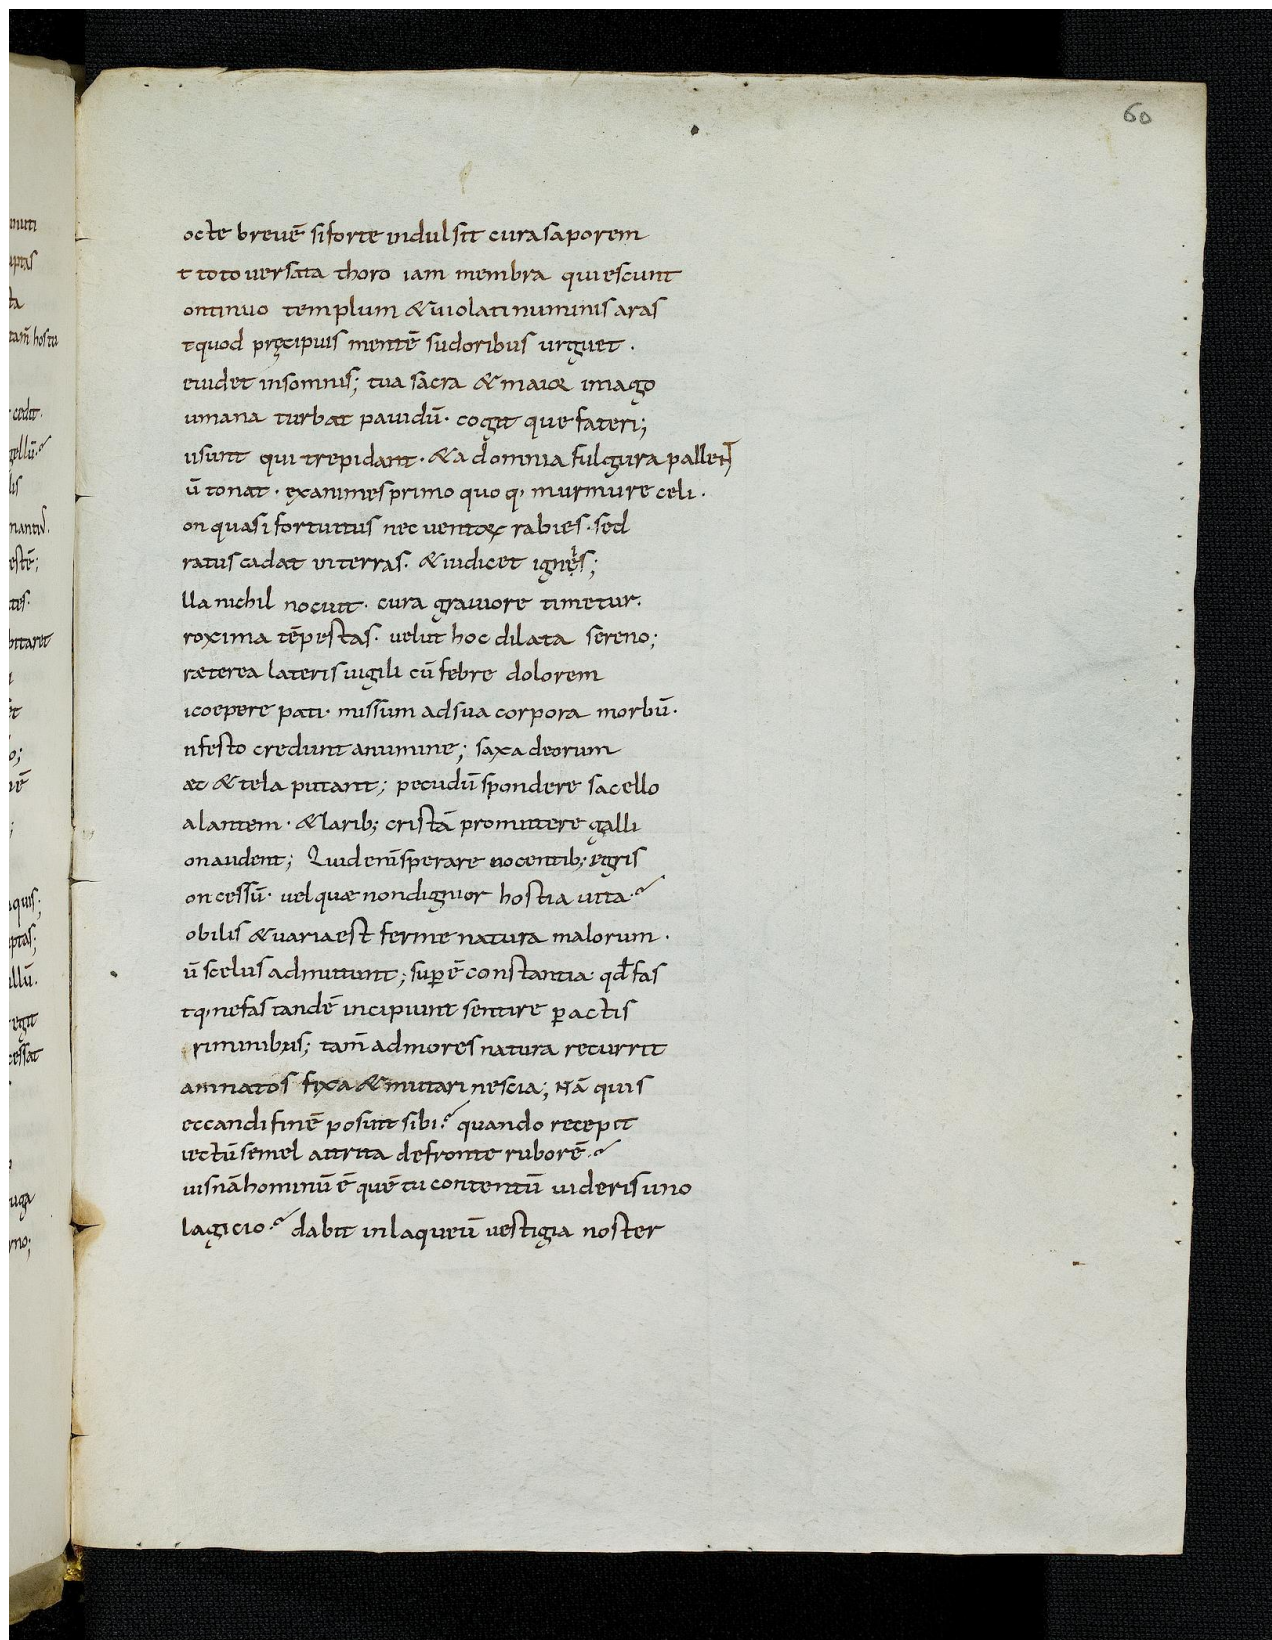 60
octe breuē si forte indulsit cura saporem
t toto uersata thoro iam membra quiescunt
ontinuo templum & uiolati numinis aras
t quod pręcipuis mentē sudoribus urguet .
e uidet in somnis; tua sacra & maior imago
umana turbat pauidū · cogit que fateri;
ii sunt qui trepidant · & ad omnia fulgura pallent
ū tonat · exanimes primo quoq, murmure celi .
on quasi fortuitus nec uentorum rabies · sed
ratus cadat in terras · & iudicet ignes;
lla nichil nocuit · cura grauiore timetur.
roxima tēpestas · uelut hoc dilata sereno;
ræterea lateris uigili cū febre dolorem
i coepere pati · missum ad sua corpora morbū ·
nfesto credunt a numine; saxa deorum
æc & tela putant; pecudū spondere sacello
alantem · & larib; cristā promittere galli
on audent; Quid enī sperare nocentib; egris
oncessū · uel quæ non dignior hostia uita ·
obilis & uaria est ferme natura malorum .
ū scelus admittunt; supē constantia · qđ fas
tq, nefas tandē incipiunt sentire pactis
riminibus; tam̄ ad mores natura recurrit
amnatos fixa & mutari nescia; Nā quis
eccandi finē posuit sibi · quando recepit
iectū semel attrita de fronte ruborē ·
uisnā hominū ē quē tu contentū uideris uno
lagicio · dabit in laqueū uestigia noster